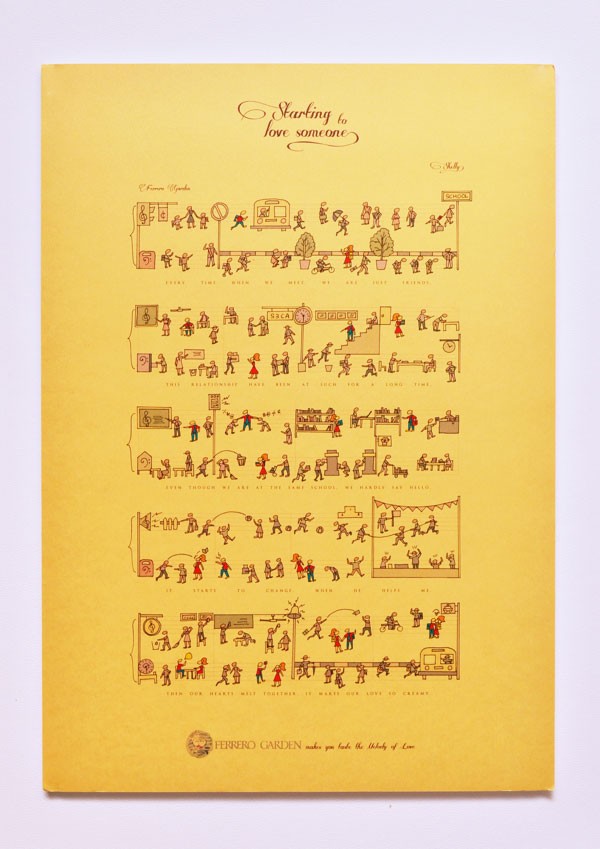 Starting to
love someone
Shelly
Ferrero Garden
SCHOOL
EVERY TIME WHEN WE MEET, WE ARE JUST FRIENDS.
THIS RELATIONSHIP HAVE BEEN AT SUCH FOR A LONG TIME.
EVEN THOUGH WE ARE AT THE SAME SCHOOL, WE HARDLY SAY HELLO.
IT STARTS TO CHANGE WHEN HE HELPS ME.
THEN OUR HEARTS MELT TOGETHER. IT MAKES OUR LOVE SO CREAMY.
FERRERO GARDEN makes you taste the Melody of Love